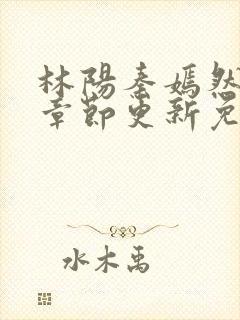 林陽秦嫣然
章節更新免
水木禹